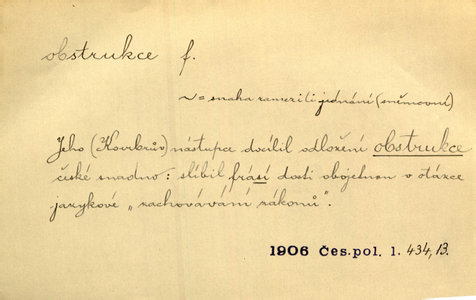 obstrukce f.
~ = snaha zameziti jednání (sněmovní)
Jeho (Koerbrův) nástupce docílil odložení obstrukce
české snadno: slíbil frásí dosti obojetnou v otázce
jazykové „zachovávání zákonů".
1906 Čes. pol. 1. 434, 13.